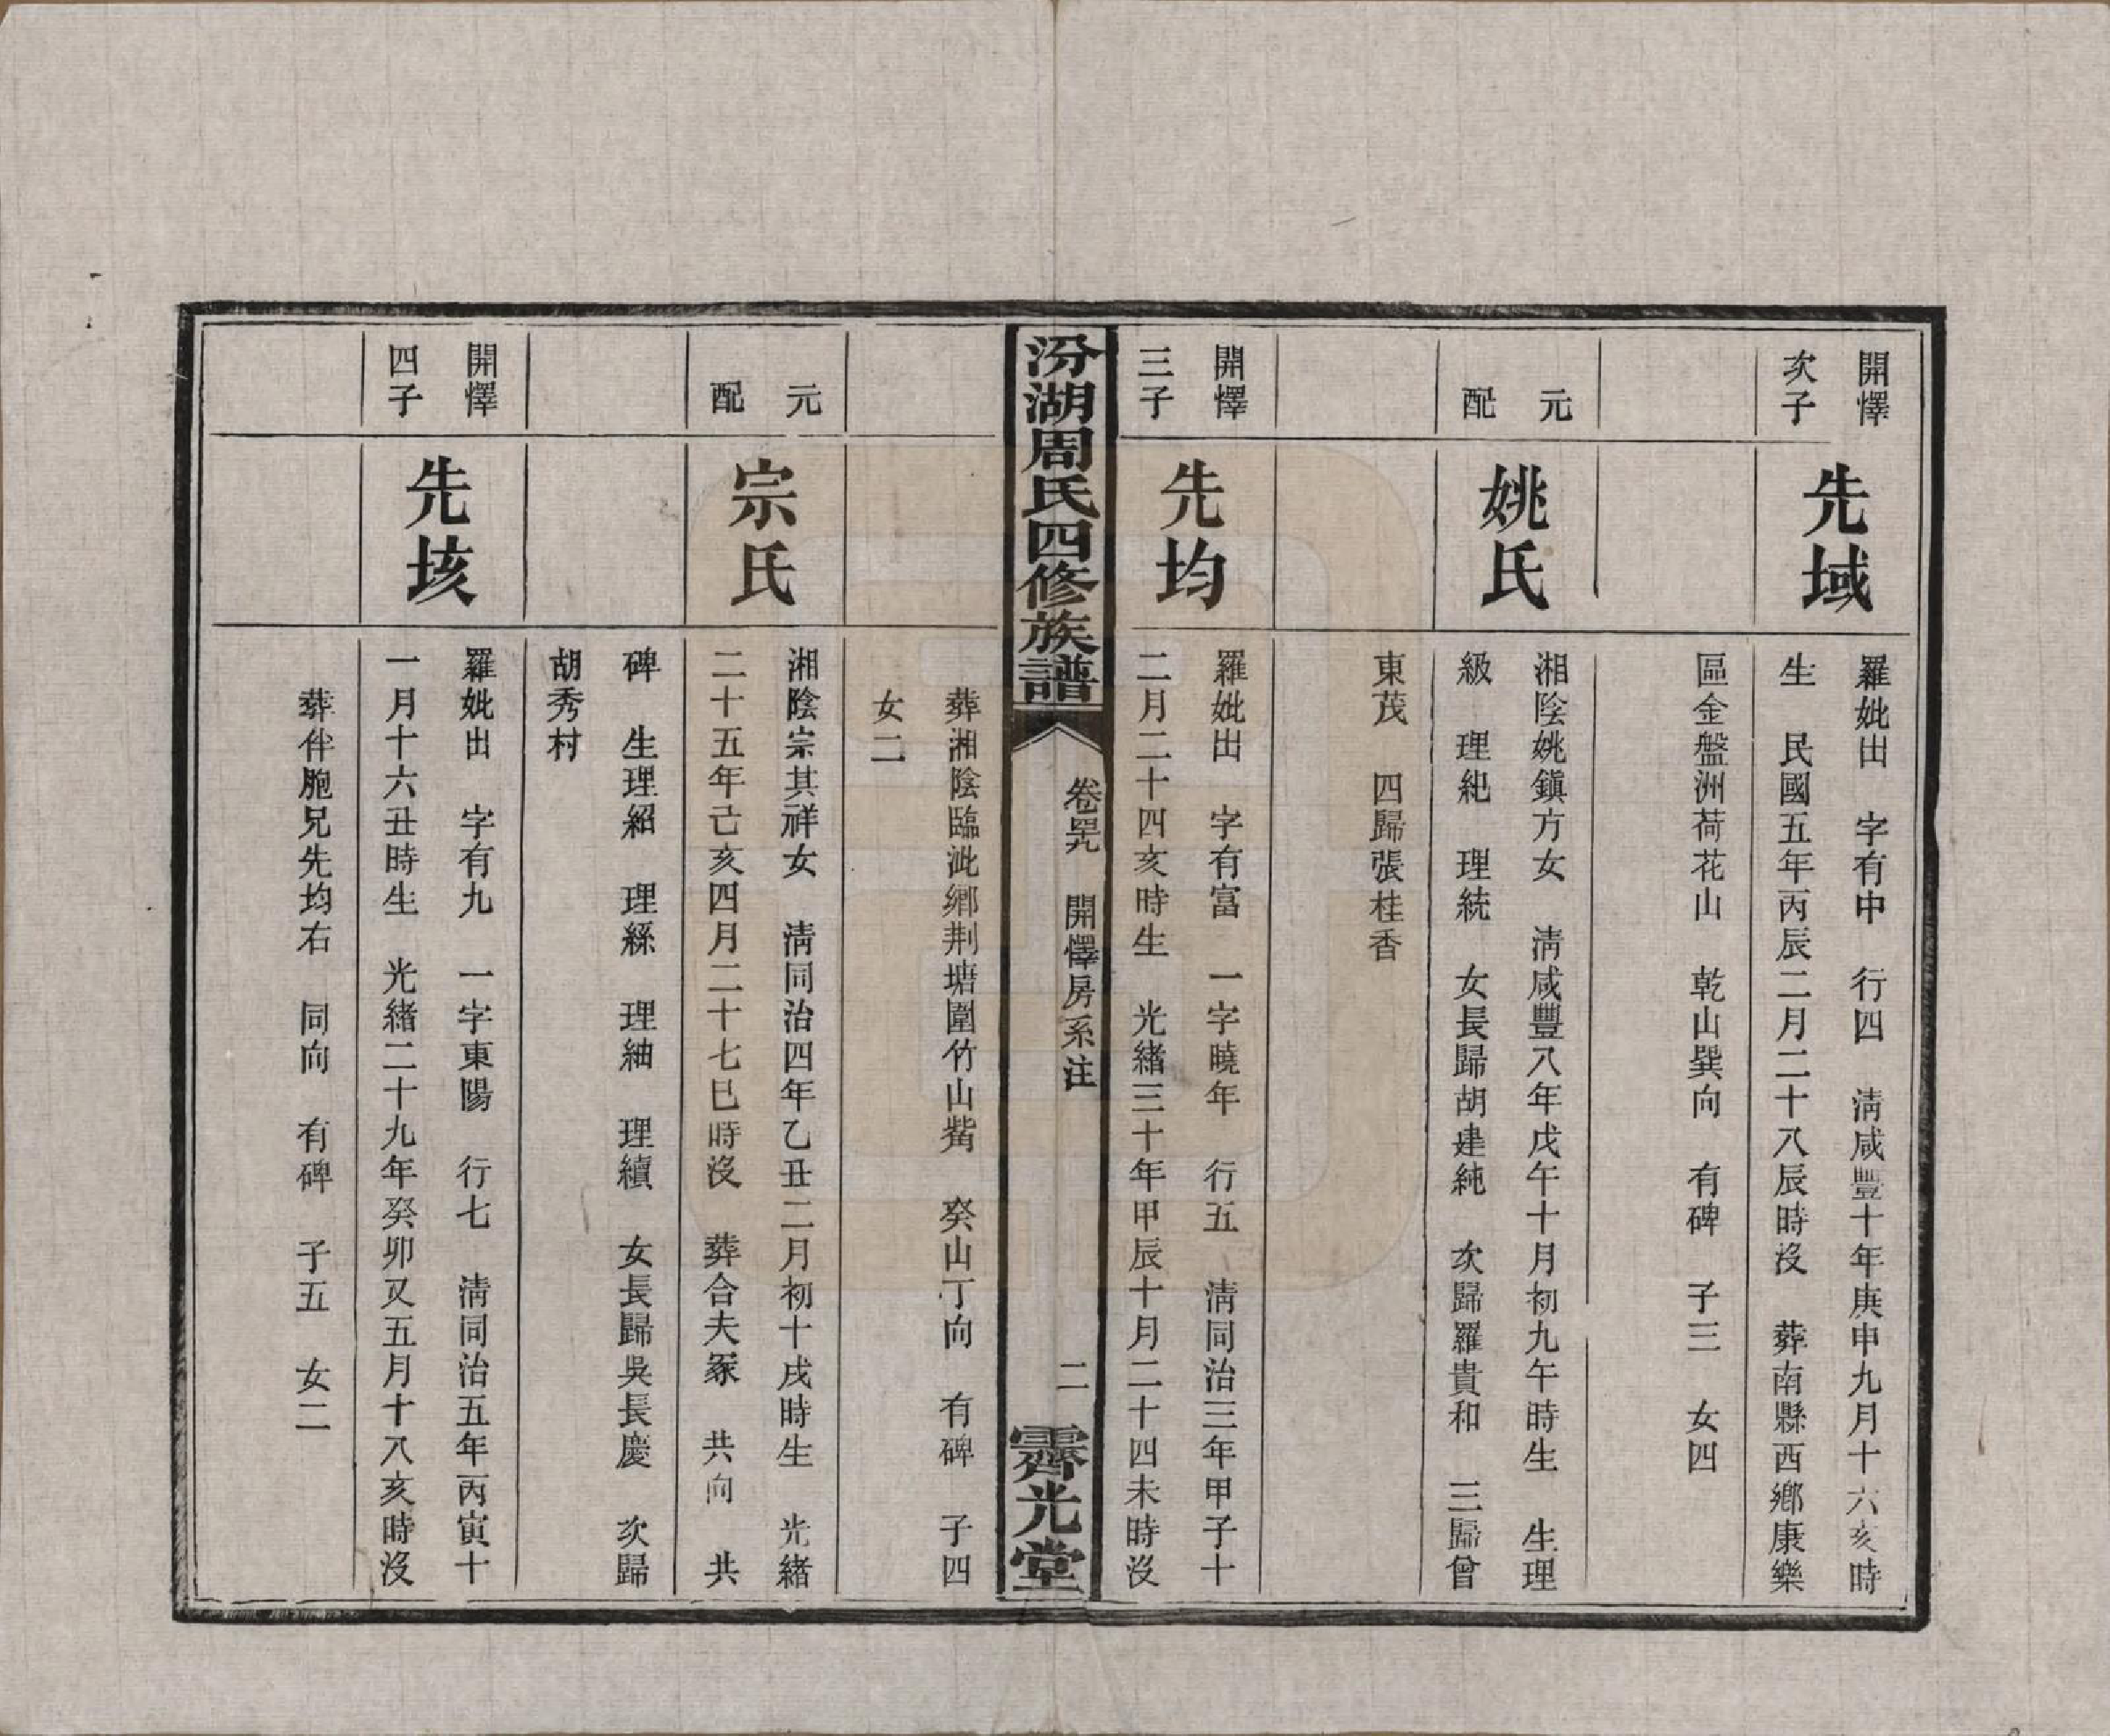 開懌
次子
先域
羅妣出　字有中　行四　淸咸豐十年庚申九月十六亥時
生　民國五年丙辰二月二十八辰時沒　葬南縣西鄉康樂
區金盤洲荷花山　乾山巽向　有碑　子三　女四
元
配
姚氏
湘陰姚鎭方女　淸咸豐八年戊午十月初九午時生　生理
級　理紀　理統　女長歸胡建純　次歸羅貴和　三歸曾
東茂　四歸張桂香
開懌
三子
先均
羅妣出　字有富　一字曉年　行五　淸同治三年甲子十
二月二十四亥時生　光緖三十年甲辰十月二十四未時沒
汾湖周氏四修族譜
開懌房系注
二
霽光堂
葬湘陰臨泚鄉荆塘圍竹山觜　癸山丁向　有碑　子四
女二
元
配
宗氏
湘陰宗其祥女　淸同治四年乙丑二月初十戌時生　光緖
二十五年己亥四月二十七巳時沒　葬合夫冢　共向　共
碑　生理紹　理繇　理紬　理續　女長歸吳長慶　次歸
胡秀村
開懌
四子
先垓
羅妣出　字有九　一字東陽　行七　淸同治五年丙寅十
一月十六丑時生　光緖二十九年癸卯又五月十八亥時沒
葬伴胞兄先均右　同向　有碑　子五　女二